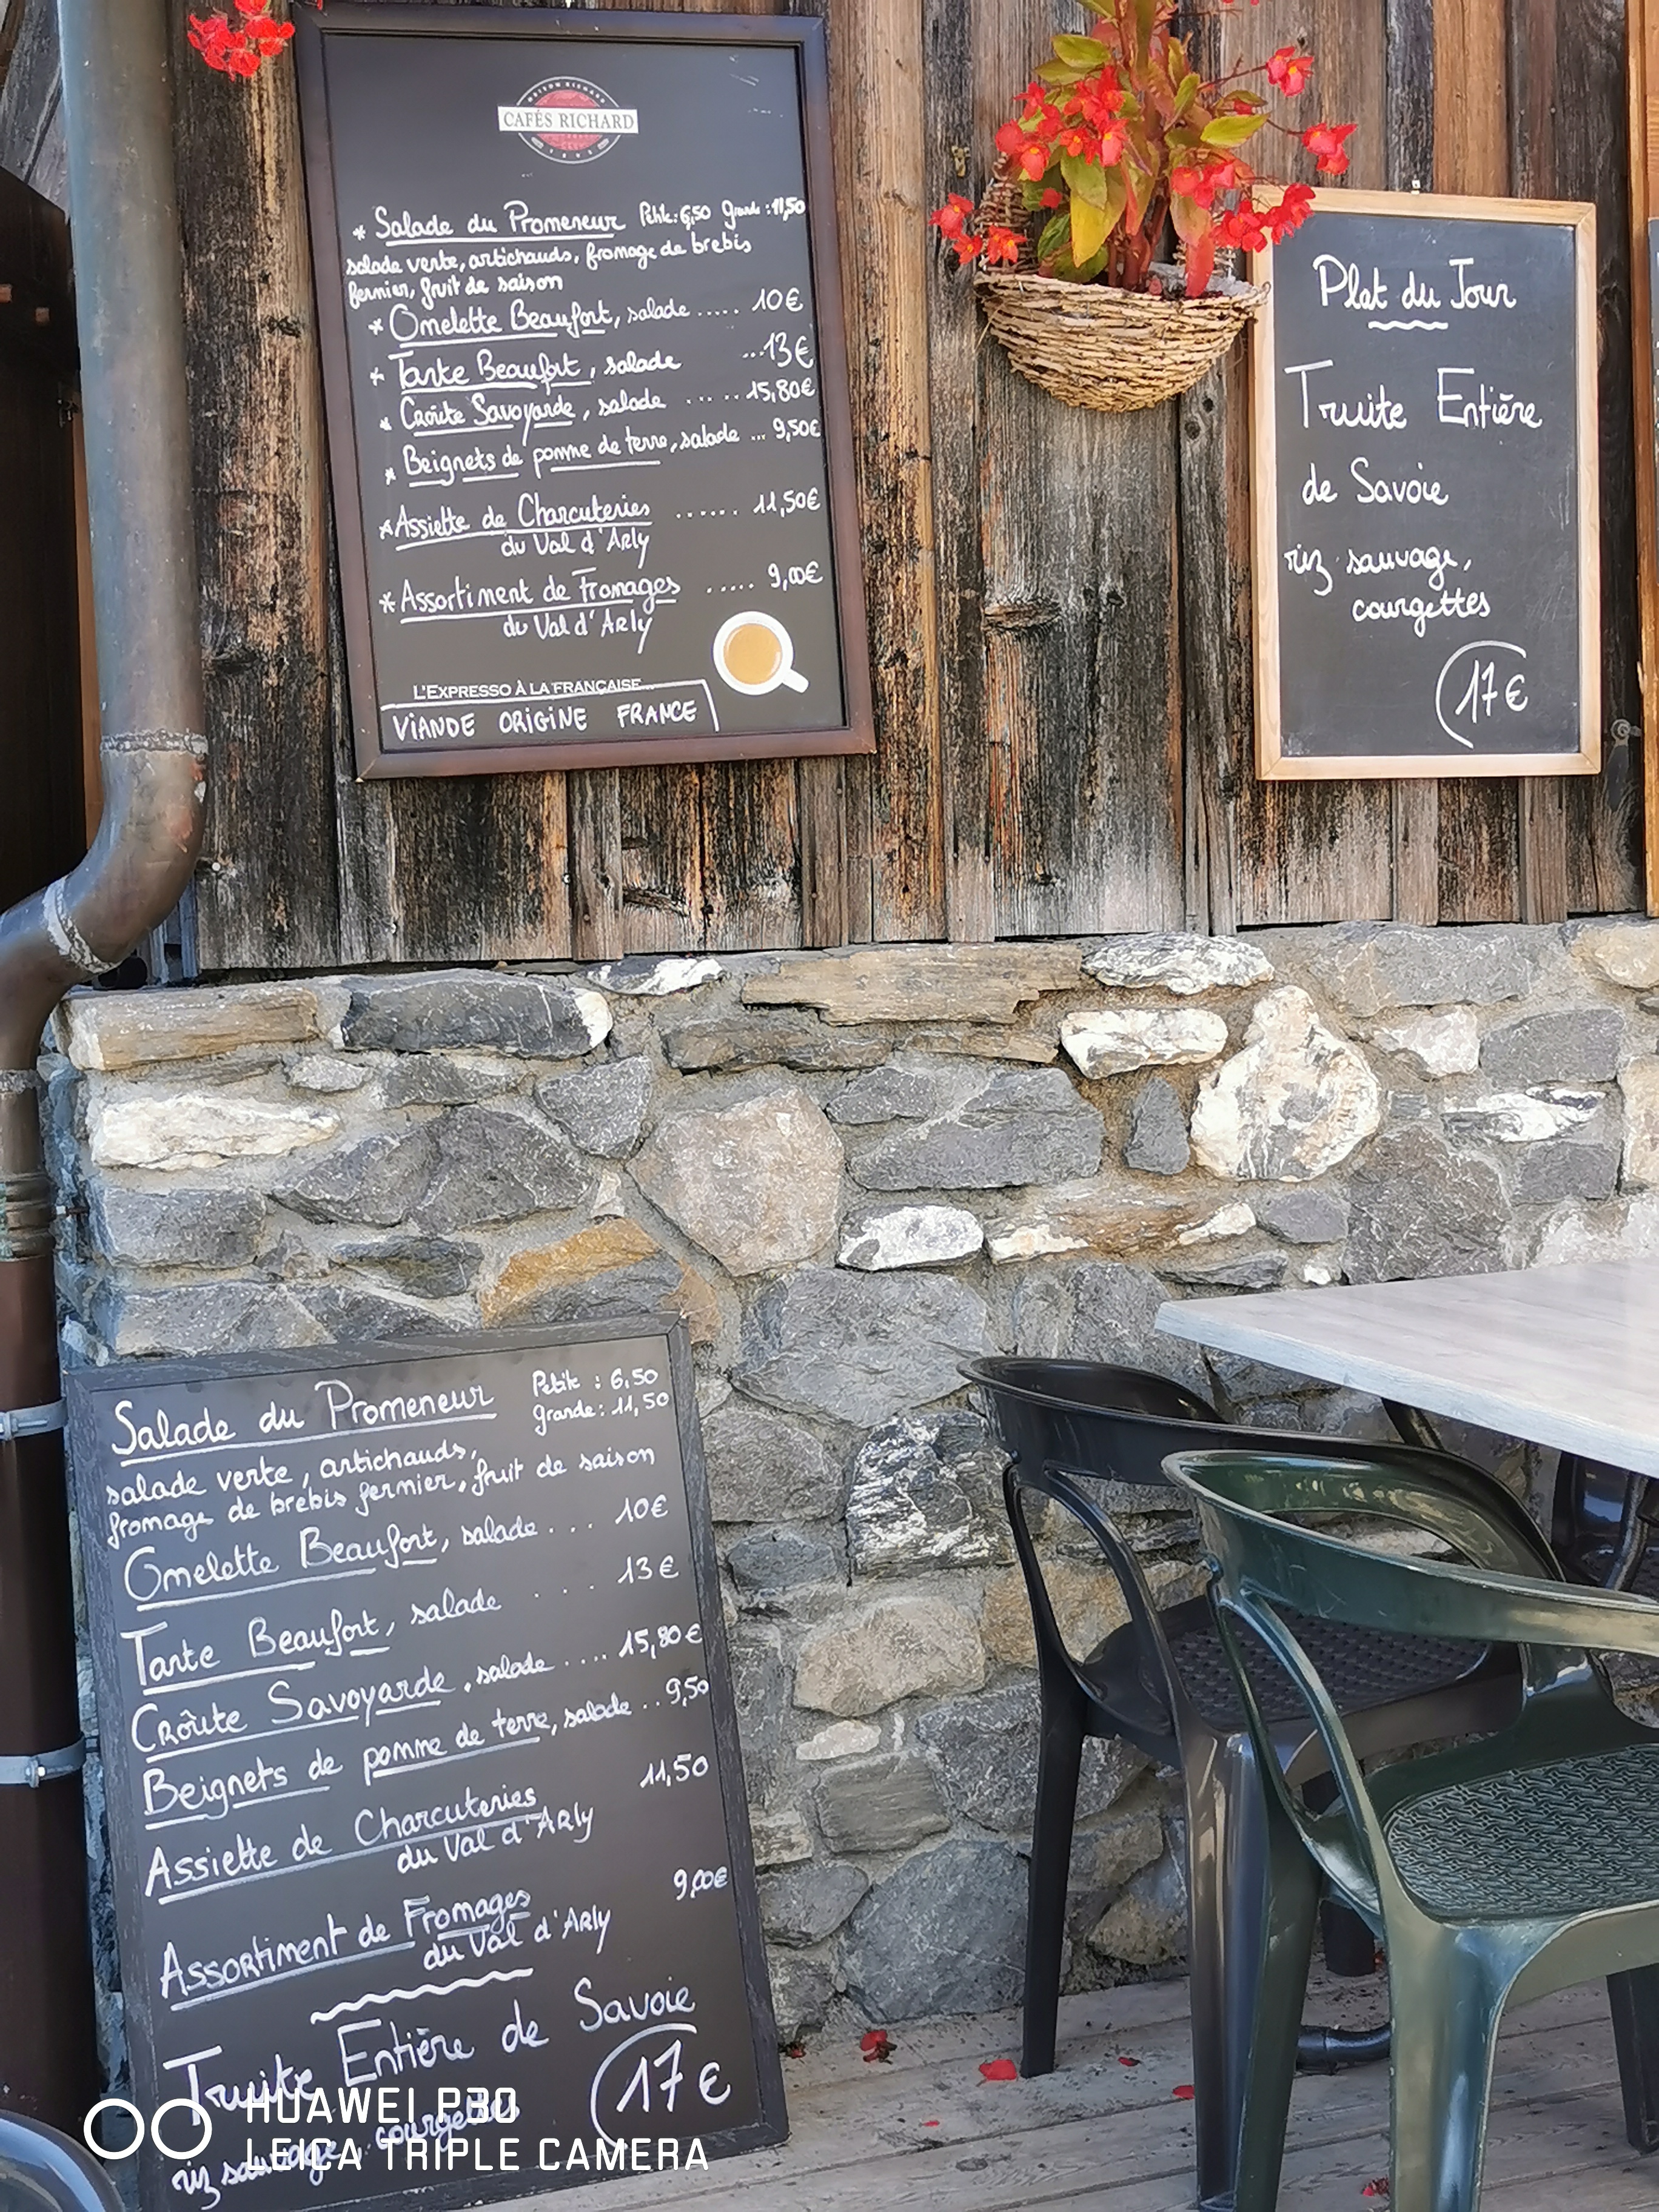 MAISON RICHARD
CAFÉS RICHARD
1892
* Salade du Promeneur Petite: 6,50 Grande: 11,50
salade verte, artichauds, fromage de brebis
fermier, fruit de saison
* Omelette Beaufort, salade ..... 10€
* Tarte Beaufort, salade ...13€
* Croûte Savoyarde, salade ... ..15,80€
* Beignets de pomme de terre, salade ... 9,50€
* Assiette de Charcuteries ...... 11,50€
du Val d'Arly
* Assortiment de Fromages ..... 9,00€
du Val d'Arly
L'EXPRESSO À LA FRANÇAISE...
VIANDE ORIGINE FRANCE
Plat du Jour
Truite Entière
de Savoie
riz sauvage,
courgettes
17€
Salade du Promeneur Petite : 6,50
Grande: 11,50
salade verte, artichauds,
fromage de brebis fermier, fruit de saison
Omelette Beaufort, salade ... 10€
Tarte Beaufort, salade ... 13€
Croûte Savoyarde, salade .... 15,80€
Beignets de pomme de terre, salade .. 9,50
Assiette de Charcuteries 11,50
du Val d'Arly
Assortiment de Fromages 9,00€
du Val d'Arly
Truite Entière de Savoie
riz sauvage, courgettes 17€
HUAWEI P30
LEICA TRIPLE CAMERA